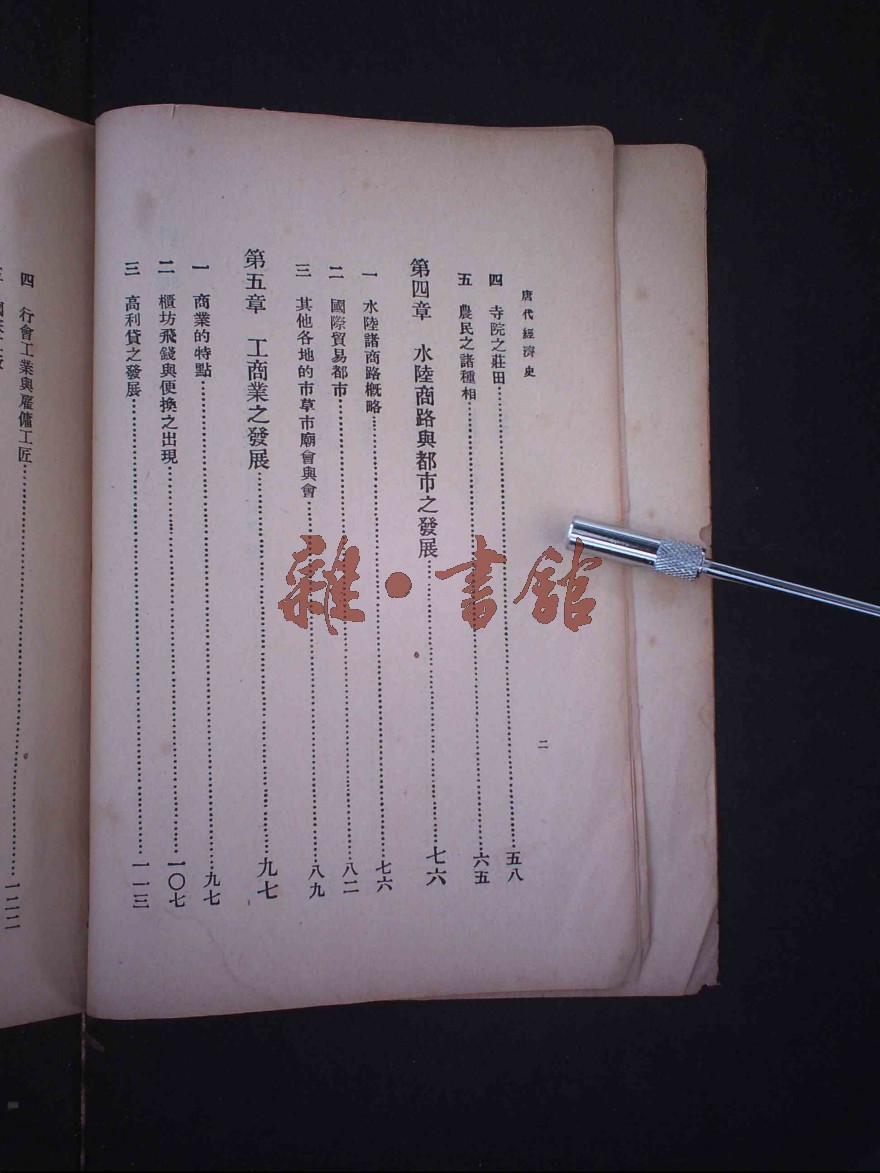 唐代經濟史
二
四 寺院之莊田 五八
五 農民之諸種相 六五
第四章 水陸商路與都市之發展 七六
一 水陸諸商路概略 七六
二 國際貿易都市 八二
三 其他各地的市草市廟會與會 八九
第五章 工商業之發展 九七
一 商業的特點 九七
二 櫃坊飛錢與便換之出現 一〇七
三 高利貸之發展 一一三
四 行會工業與雇傭工匠 一二二
雜·書館